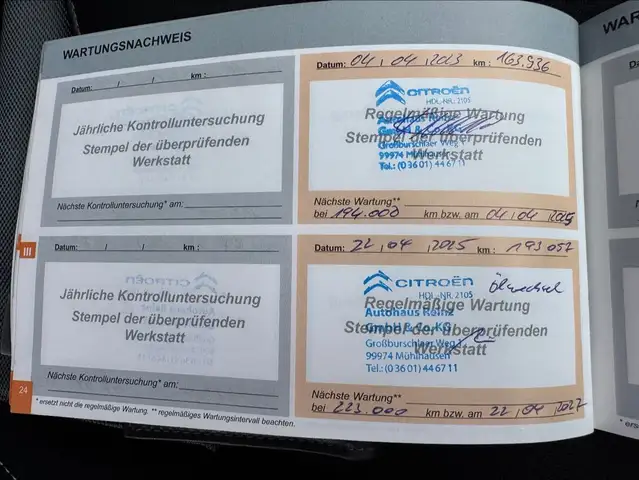 WARTUNGSNACHWEIS
WAR
Datum: / / km :
Jährliche Kontrolluntersuchung
Stempel der überprüfenden
Werkstatt
Nächste Kontrolluntersuchung* am:
Datum: 04 , 04 , 2023 km : 163.936
CITROËN
HDL-NR. 2105
Regelmäßige Wartung
Autohaus
GmbH &
Stempel der überprüfenden
Großburschlaer Weg 1
Werkstatt
99974 Mühlhausen
Tel.: (03601) 446711
Nächste Wartung**
bei 194.000 km bzw. am 04 , 04 , 2025
Datum: / / km :
Jährliche Kontrolluntersuchung
Stempel der überprüfenden
Werkstatt
Nächste Kontrolluntersuchung* am:
Datum: 22 , 04 , 2025 km : 193 052
CITROËN
HDL-NR. 2105
Ölwechsel
Regelmäßige Wartung
Autohaus Reinz
GmbH & Co. KG
Stempel der überprüfenden
Großburschlaer Weg 1
Werkstatt
99974 Mühlhausen
Tel.: (03601) 446711
Nächste Wartung**
bei 223.000 km bzw. am 22 , 04 , 2027
III
24
* ersetzt nicht die regelmäßige Wartung. ** regelmäßiges Wartungsintervall beachten.
* ers